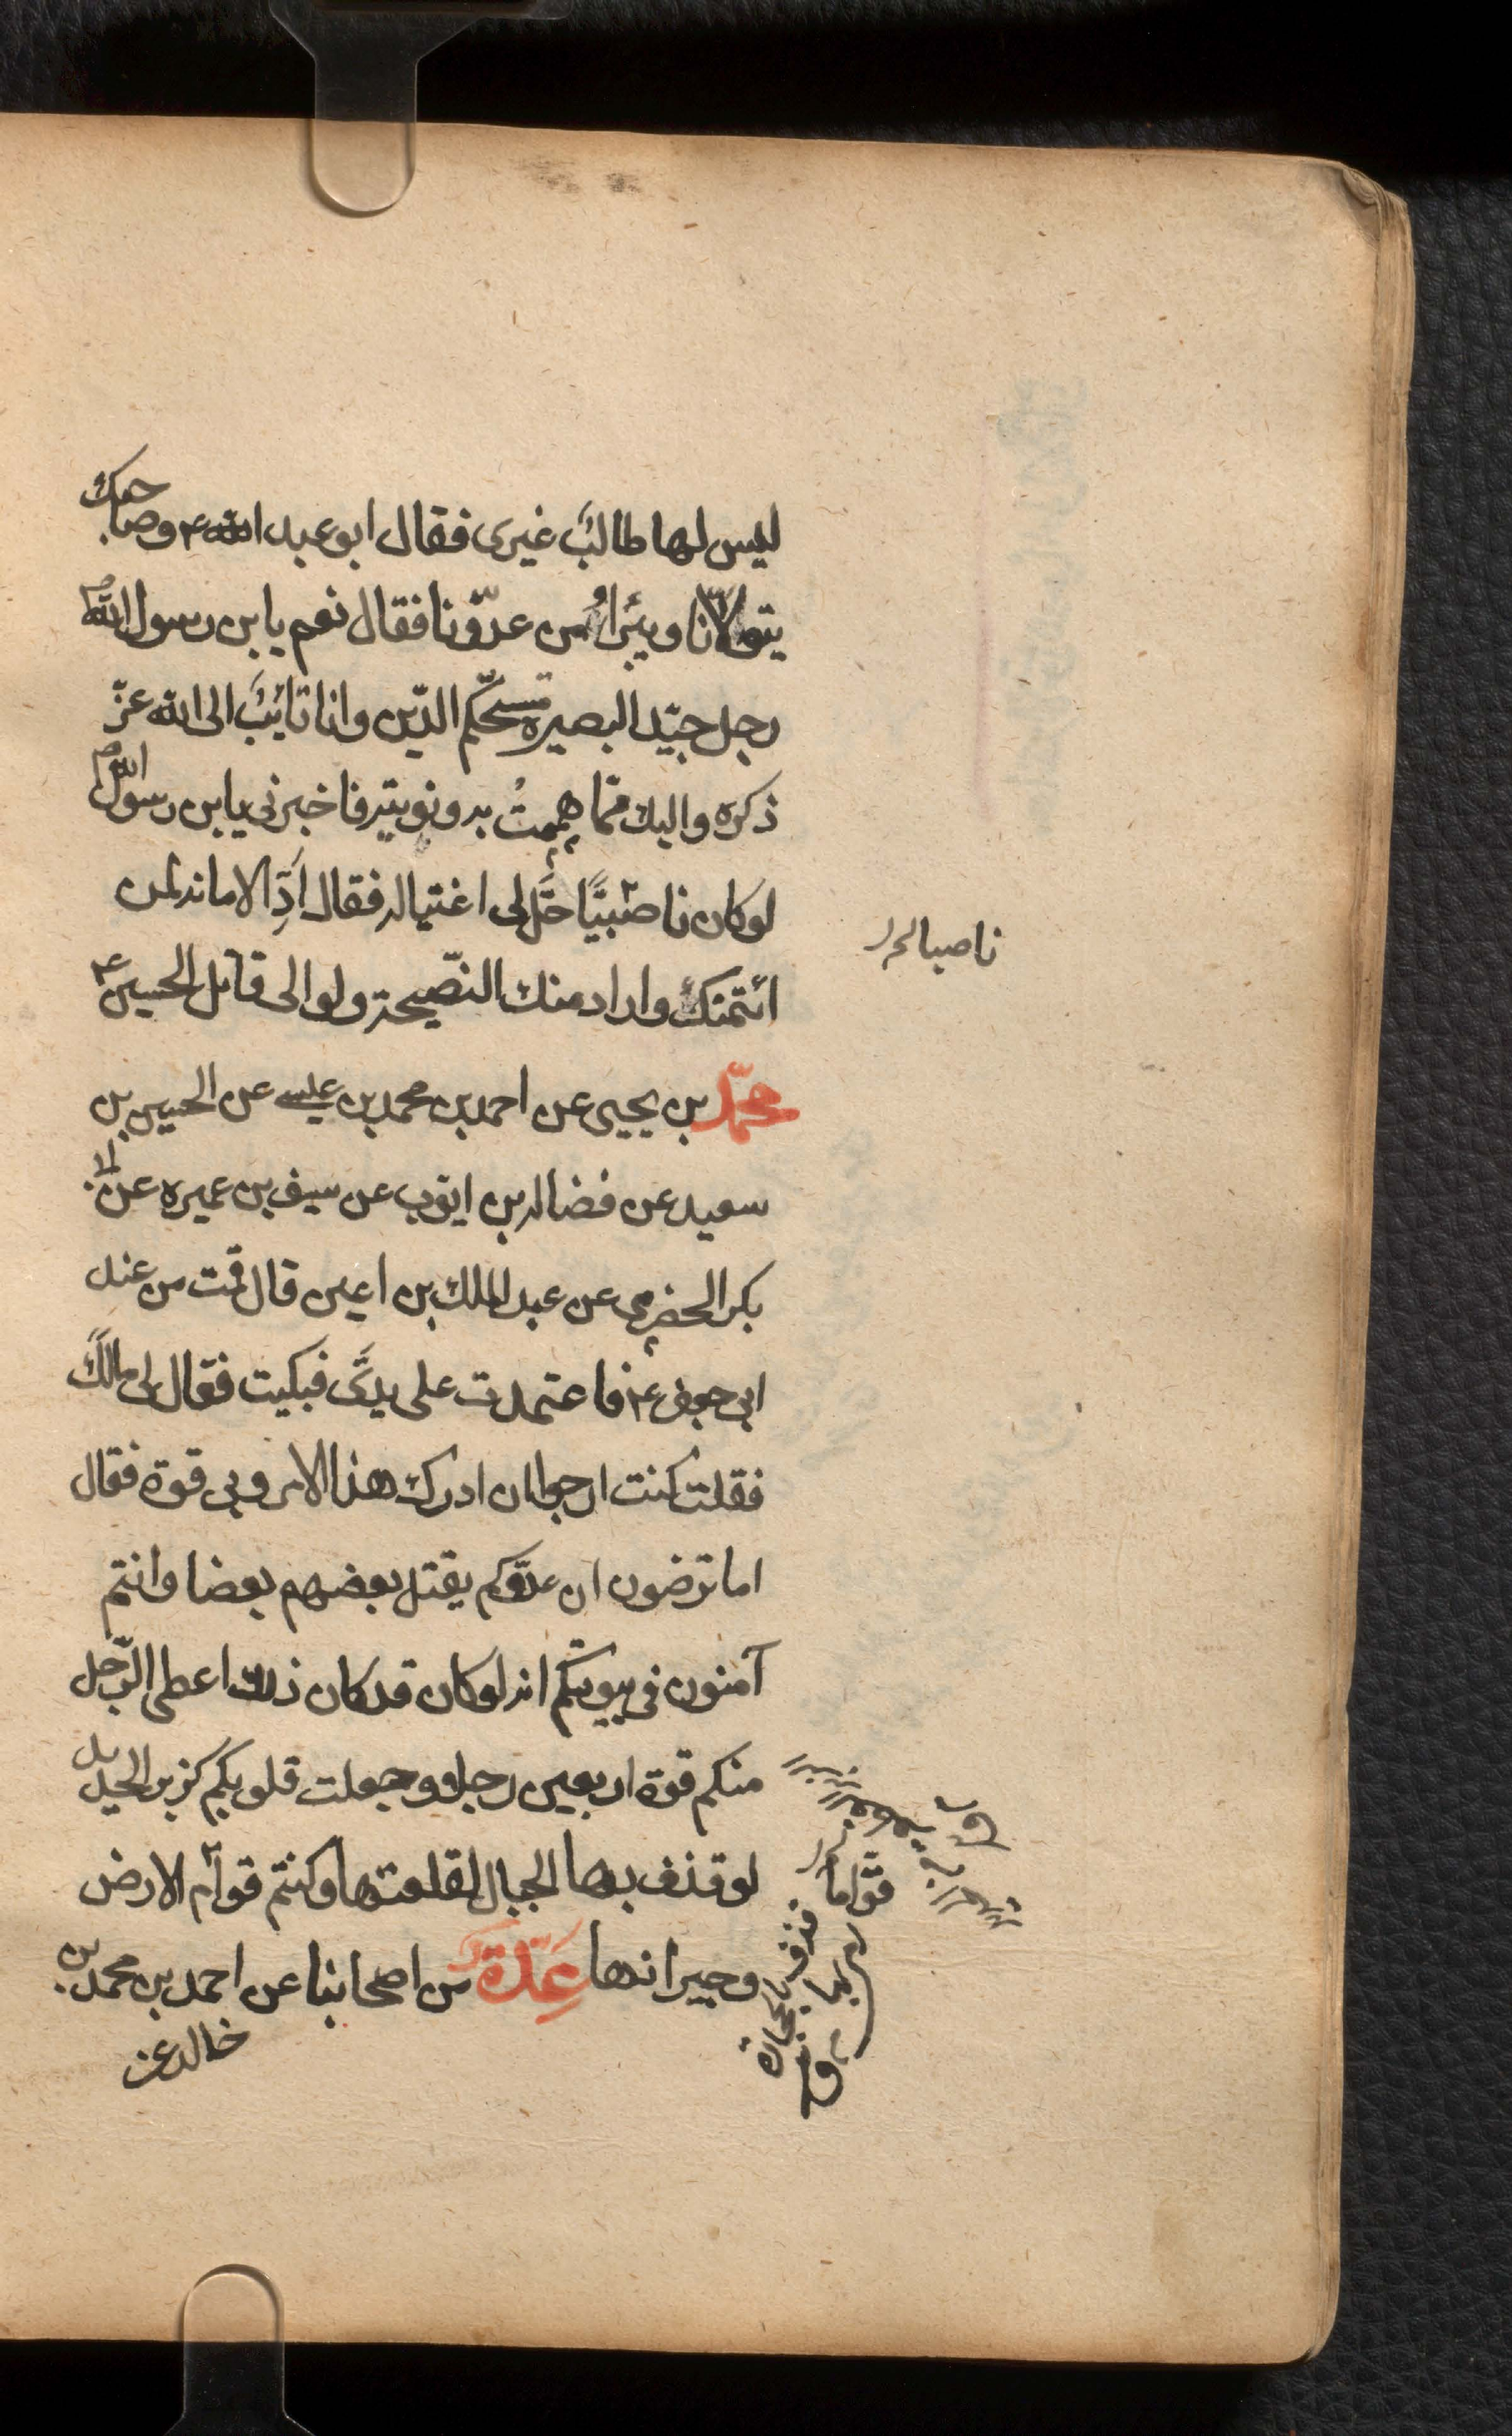 ليس لها طالبٌ غيرى فقال ابو عبد الله ع وصاحبك
يتولّانا ويبرأُ من عدوّنا فقال نعم يابن رسول الله ص
رجل جيّد البصيره مستحكم الدّين وانا تائبٌ الى الله عزّ
ذكره واليك ممّا هممتُ به ونويته فاخبرنى يابن رسول الله ص
لو كان ناصبيًّا حَلَّ لى اغتياله فقال اَدِّ الامانه لمن
ائتمنك واراد منك النّصيحة ولو الى قاتل الحسين ع
ناصبا لحل
محمّد بن يحيى عن احمد بن محمد بن عيسى عن الحسين بن
سعيد عن فضاله بن ايوب عن سيف بن عميره عن ابى
بكر الحضرمى عن عبد الملك بن اعين قال قمت من عند
ابى جعفر ع فاعتمدت على يدىَّ فبكيت فقال لى مالكَ
فقلت كنت ارجوا ان ادرك هذا الامر وبى قوة فقال
اما ترضون ان عدوّكم يقتل بعضهم بعضا وانتم
آمنون فى بيوتكم انه لو كان قد كان ذلك اعطى الرّجل
منكم قوة اربعين رجلا وجعلت قلوبكم كزبر الحديد
لو قذف بها الجبال لقلعتها وكنتم قوام الارض
قوّاما
وجيرانها عِدّة من اصحابنا عن احمد بن محمد بن
قذف بالحجارة
خالد عن